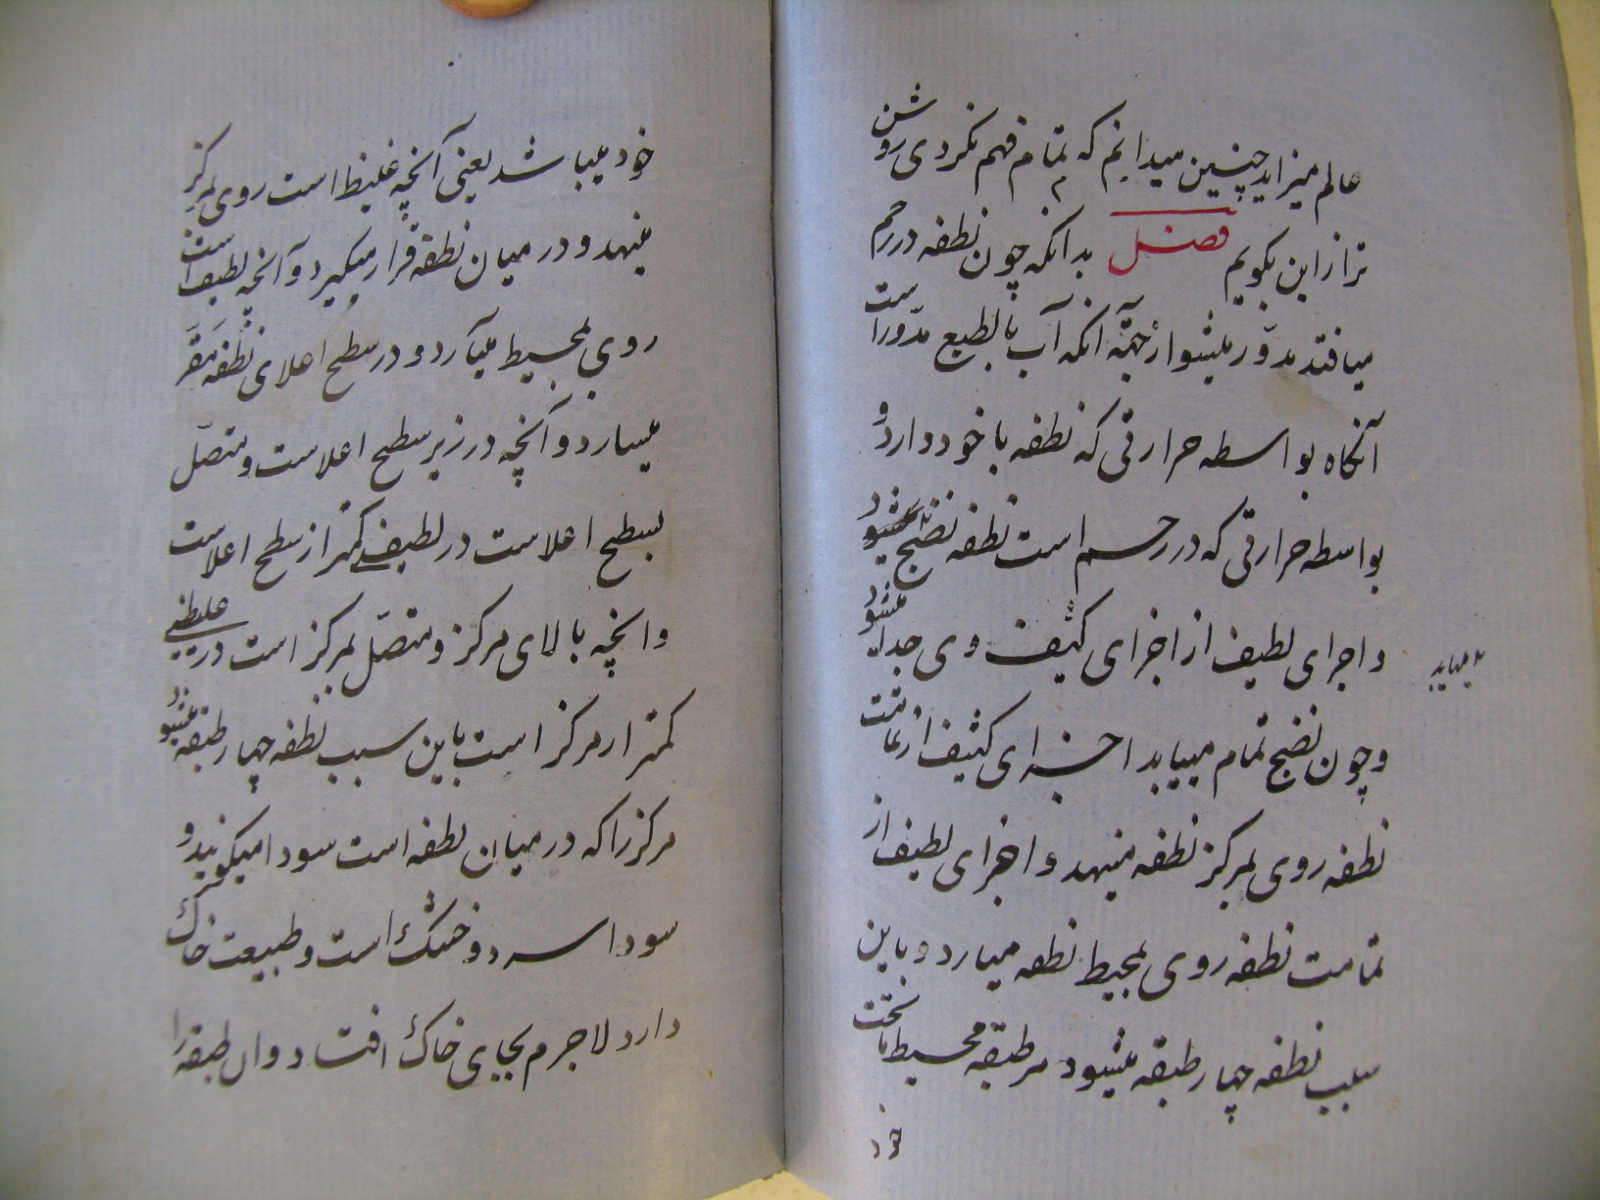 عالم میزاید چنین میدانم که تمام فهم نکردی روشن
تر از این بگویم فصل بدانکه چون نطفه در رحم
میافتد مدوّر میشود از جهته آنکه آب بالطبع مدّور است
آنکاه بواسطه حرارتی که نطفه با خود دارد و
بواسطه حرارتی که در رحم است نطفه نضج میشود
و اجزای لطیف از اجزای کثیف وی جدا میشود
و چون نضج تمام مییابد اجزای کثیف از تمامت
نطفه روی بمرکز نطفه مینهد و اجزای لطیف از
تمامت نطفه روی بمحیط نطفه میارد و باین
سبب نطفه چهار طبقه میشود هر طبقه محیط ماتحت
خود
خود میباشد یعنی آنچه غلیظ است روی بمرکز
مینهد و در میان نطفه قرار میگیرد و آنچه لطیف است
روی بمحیط میآرد و در سطح اعلای نطفه مقر
میسازد و آنچه در زیر سطح اعلاست و متصّل
بسطح اعلاست در لطیفی کمتر از سطح اعلاست
وانچه بالای مرکز و متصّل بمرکز است در غلیظی
کمتر از مرکز است باین سبب نطفه چهار طبقه میشود
مرکز را که در میان نطفه است سودا میکویند و
سودا سرد و خشک است و طبیعت خاک
دارد لاجرم بجای خاک افتاد وان طبقه را